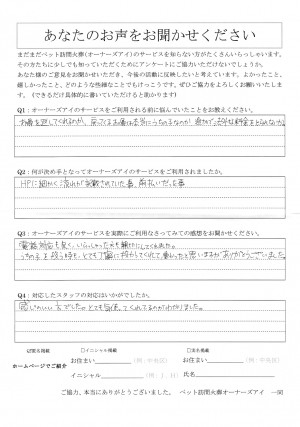 あなたのお声をお聞かせください
まだまだペット訪問火葬(オーナーズアイ)のサービスを知らない方がたくさんいらっしゃいます。
その方たちに少しでも知っていただくためにアンケートにご協力いただけないでしょうか。
あなた様のご意見をお聞かせいただき、今後の活動に反映したいと考えています。よかったこと、
嬉しかったこと、どのような些細なことでもけっこうです。ぜひご協力をよろしくお願いいたし
ます。(できるだけ具体的に書いていただけると助かります)
Q1：オーナーズアイのサービスをご利用される前に悩んでいたことをお教えください。
Q2：何が決め手となってオーナーズアイのサービスをご利用されましたか。
HPに細かく流れが掲載されていた事、前払いだった事
Q3：オーナーズアイのサービスを実際にご利用なさってみての感想をお聞かせください。
電話対応も良く、いらっしゃった方も親切にしてくれました。
うちの子を扱う時も、とても丁寧に扱かってくれて、喜んだと思いますありがとうございました。
Q4：対応したスタッフの対応はいかがでしたか。
感じのいい方でした。とても気使ってくれてるのがわかりました。
匿名掲載
□イニシャル掲載
□実名掲載
ホームページでご紹介
お住まい
(例：中央区)
お住まい
(例：中央区)
イニシャル
氏名
ご協力、本当にありがとうございました。 ペット訪問火葬オーナーズアイ